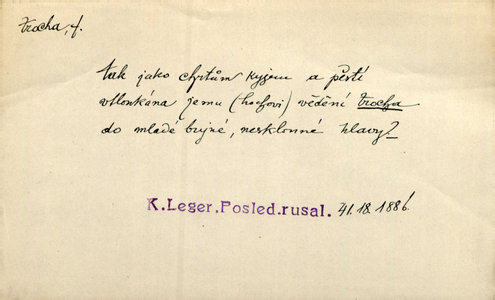 trocha, f.
tak jako chrtům kyjem a pěstí
vtloukána jemu (hochovi) vědění trocha
do mladé bujné, nesklonné hlavy?
K. Leger. Posled. rusal. 41. 18. 1886.